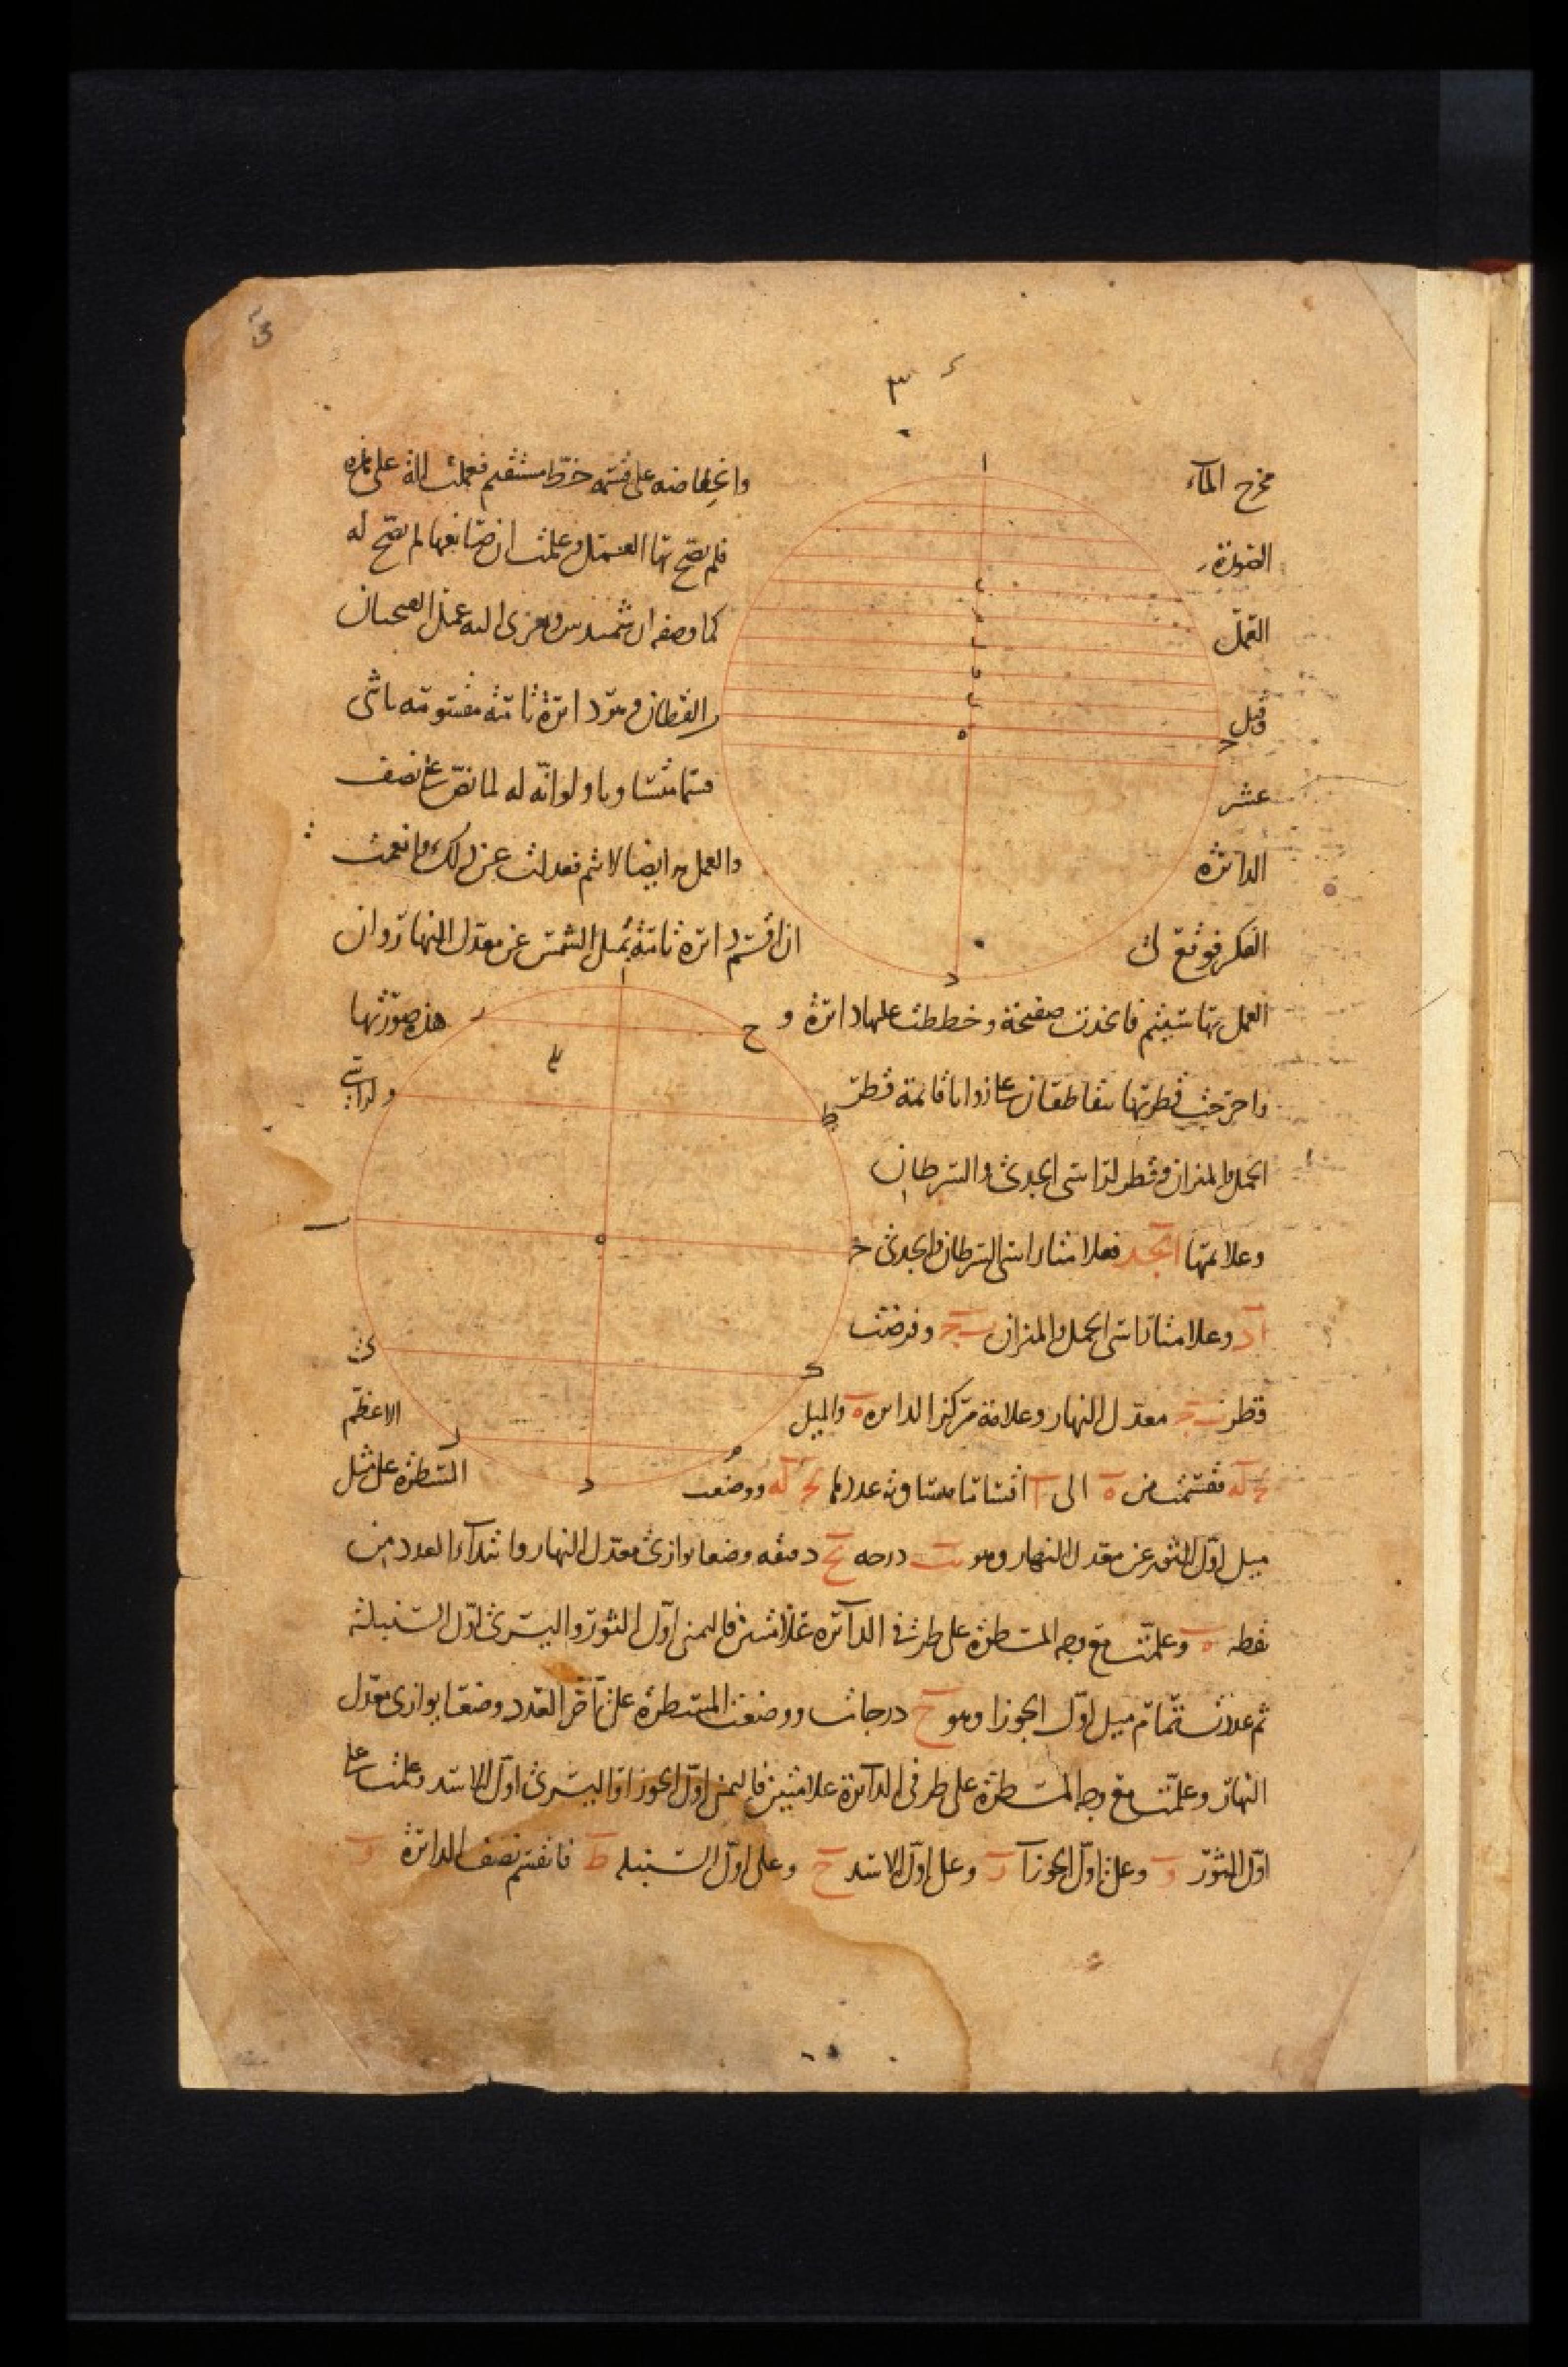 ٣
مخرج المآء وانحطاضه على قسمه خط مستقيم فعملت الة على هذه
الصورة فلم يصح بها العمل وعلمت ان صانعها لم يصح له
العمل كما وصفه ارشميدس ويعزى اليه عمل
وقيل القطان وهو دائرة ثامنة مقسومة باثنى
عشر قسما متساويا ولو انه له لما نص على نصف
الدائرة والعمل به ايضا لا يتم فعدلت عن ذلك وامعنت
الفكر فوقع لى ان اقسم دائرة ثامنة بميل الشمس عن معدل النهار وان
العمل بها يستقيم فاتخذت صفيحة وخططت عليها دائرة و هذه صورتها
واخرجت قطريها يتقاطعان على زوايا قائمة قطر لراسى
الحمل والميزان وقطر لراسى الجدى والسرطان
وعلامتها ابجد فعلامتا راسى السرطان والجدى
ا د وعلامتا راسى الحمل والميزان ب ج وفرضت
قطر ب ج معدل النهار وعلامة مركز الدائرة ه والميل الاعظم
كج له فقسمت من ه الى ا اقساما متساوية عددها كج له ووضعت المسطرة على مثل
ميل اول الثور عن معدل النهار وهو يب درجه دقيقه وضعا يوازى معدل النهار وابتدآء العدد من
نقطة ه وعلمت مع وجه المسطرة على طرفى الدآئرة علامتين فاليمنى اول الثور واليسرى اول السنبلة
ثم علامة تمام ميل اول الجوزا وهو ح درجات ووضعت المسطرة على آخر العدد وضعا يوازى معدل
النهار وعلمت مع وجه المسطرة على طرفى الدآئرة علامتين فاليمنى اول الجوزا واليسرى اول الاسد وعلمت على
اول الثور و وعلى اول الجوزآ ز وعلى اول الاسد ح وعلى اول السنبله ط فانقسم نصف الدائرة